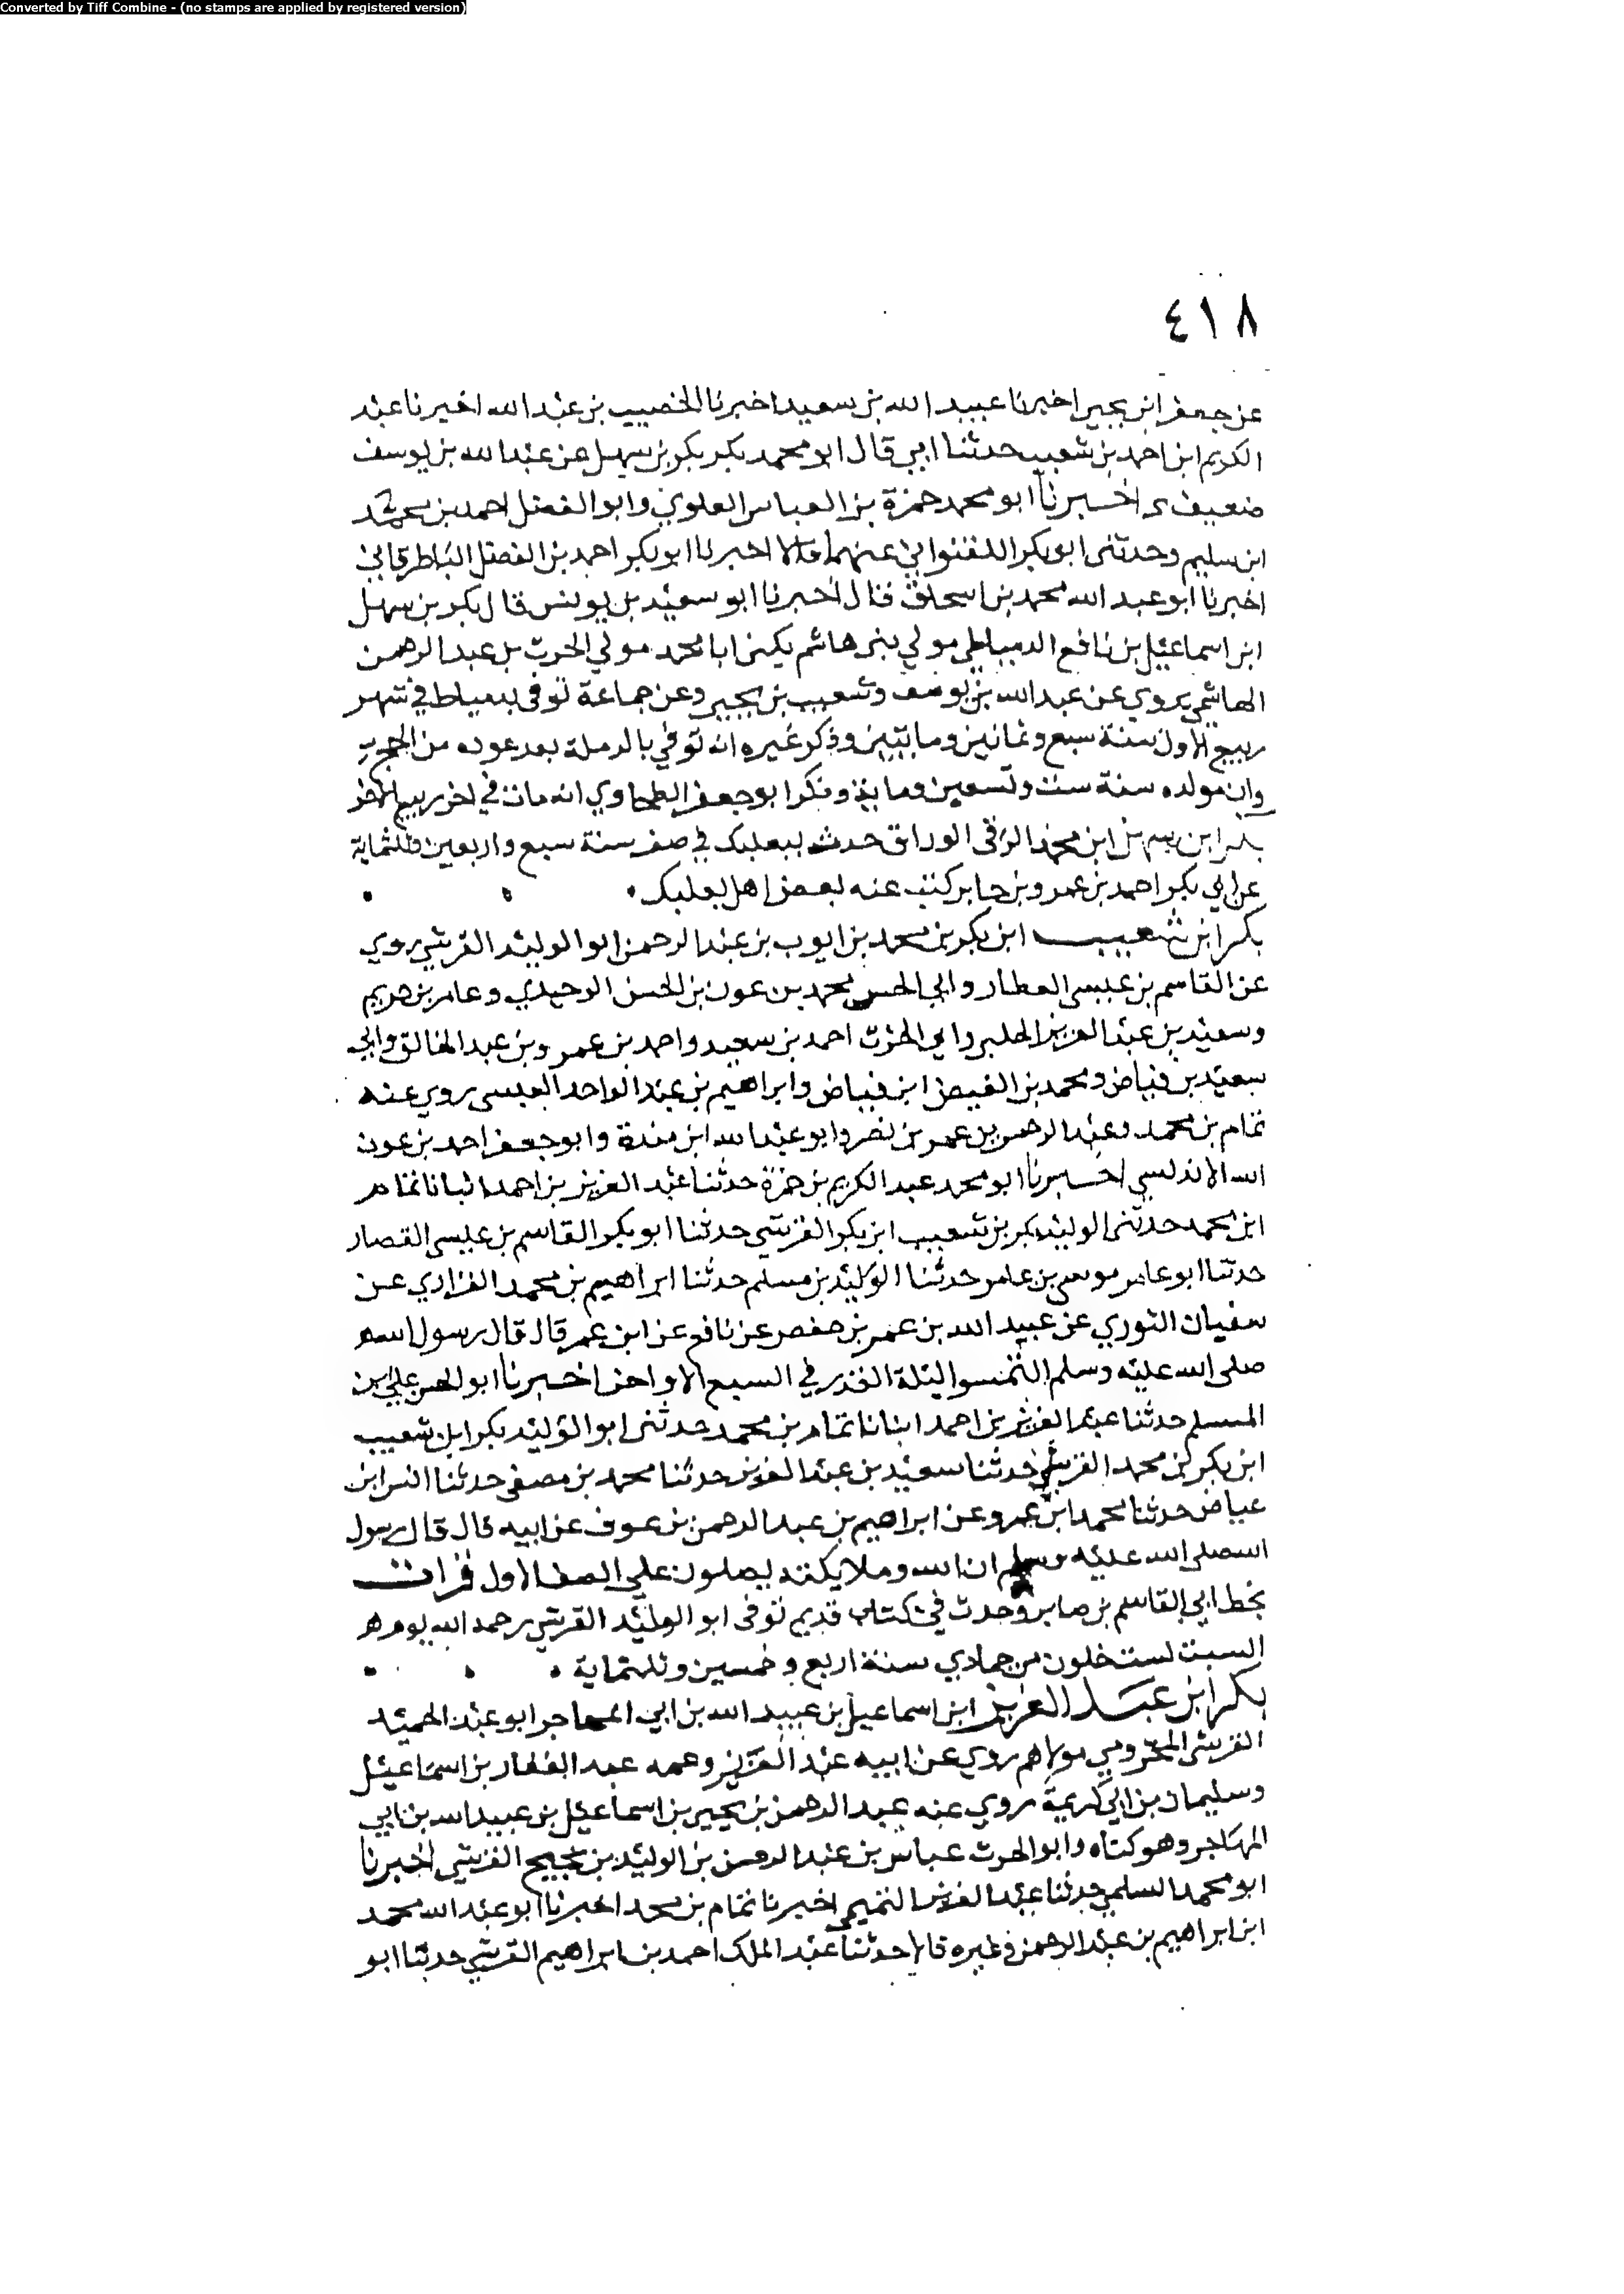 Converted by Tiff Combine - (no stamps are applied by registered version)
٤١٨
عن جعفر ابن يحيى اخبرنا عبيد الله بن سعيد اخبرنا الخصيب بن عبد الله اخبرنا عبد
الكريم ابن احمد بن شعيب حدثنا ابي قال ابو محمد بكر بكر بن سهل عن عبد الله بن يوسف
ضعيف اخبرنا ابو محمد حمزة بن العباس العلوي وابو الفضل احمد بن محمد
ابن سليم وحدثنى ابو بكر اللفتواني عنهما قالا اخبرنا ابو بكر احمد بن الفضل الباطرقاني
اخبرنا ابو عبد الله محمد بن اسحاق قال اخبرنا ابو سعيد بن يونس قال بكر بن سهل
ابن اسماعيل بن نافع الدمياطي مولي بنى هاشم يكنى ابا محمد مولي الحرث بن عبد الرحمن
الهاشمي يروي عن عبد الله بن يوسف وشعيب بن يحيى وعن جماعة توفى بدمياط في شهر
ربيع الاول سنة سبع وثمانين ومايتين وذكر غيره انه توفي بالرملة بعد عوده من الحج
وان مولده سنة ست وتسعين ومايه وذكر ابو جعفر الطحاوي انه مات في اخر ربيع الاخر
بكر ابن سهل ابن محمد الرقى الوراق حدث ببعلبك في صفر سنة سبع واربعين وثلثماية
عن ابي بكر احمد بن عمرو بن جابر كتب عنه بعض اهل بعلبك
بكر ابن شعيب ابن بكر بن محمد بن ايوب بن عبد الرحمن ابو الوليد القرشي روي
عن القاسم بن عيسى العطار وابي الحسن محمد بن عون بن الحسن الوحيدي وعامر بن خريم
وسعيد بن عبد العزيز الحلبي وابي الحرث احمد بن سعيد واحمد بن عمرو بن عبد الخالق وابي
سعيد بن فياض ومحمد بن الفيض ابن فياض وابراهيم بن عبد الواحد العبسى روي عنه
تمام بن محمد وعبد الرحمن بن عمر بن نصر وابو عبد الله ابن مندة وابو جعفر احمد بن عون
الله الاندلسي اخبرنا ابو محمد عبد الكريم بن حمزة حدثنا عبد العزيز بن احمد انبانا تمام
ابن محمد حدثنى الوليد بكر بن شعيب ابن بكر القرشي حدثنا ابو بكر القاسم بن عيسى القصار
حدثنا ابو عامر موسى بن عامر حدثنا الوليد بن مسلم حدثنا ابراهيم بن محمد الفزاري عن
سفيان الثوري عن عبيد الله بن عمر بن حفص عن نافع عن ابن عمر قال قال رسول الله
صلى الله عليه وسلم التمسوا ليلة القدر في السبع الاواخر اخبرنا ابو الحسن علي ابن
المسلم حدثنا عبد العزيز بن احمد انبانا تمام بن محمد حدثنى ابو الوليد بكر ابن شعيب
ابن بكر بن محمد القرشي حدثنا سعيد بن عبد العزيز حدثنا محمد بن مصفى حدثنا انس ابن
عياض حدثنا محمد ابن عمرو عن ابراهيم بن عبد الرحمن بن عوف عن ابيه قال قال رسول
الله صلى الله عليه وسلم ان الله وملايكته يصلون علي الصف الاول قرات
بخط ابي القاسم بن صابر وجدت في كتاب قديم توفى ابو الوليد القرشي رحمه الله يوم
السبت لست خلون من جمادي سنة اربع وخمسين وثلثماية
بكر ابن عبد العزيز ابن اسماعيل بن عبيد الله بن ابي المهاجر ابو عبد الحميد
القرشي المخزومي مولاهم روي عن ابيه عبد العزيز وعمه عبد الغفار بن اسماعيل
وسليمان بن ابي كريمة روي عنه عبد الرحمن بن يحيى بن اسماعيل بن عبيد الله بن ابي
المهاجر وهو كناه وابو الحرث عباس بن عبد الرحمن بن الوليد بن نجيح القرشي اخبرنا
ابو محمد السلمي حدثنا عبد العزيز التميمي اخبرنا تمام بن محمد اخبرنا ابو عبد الله محمد
ابن ابراهيم بن عبد الرحمن وغيره قالا حدثنا عبد الملك احمد بن ابراهيم القرشي حدثنا ابو